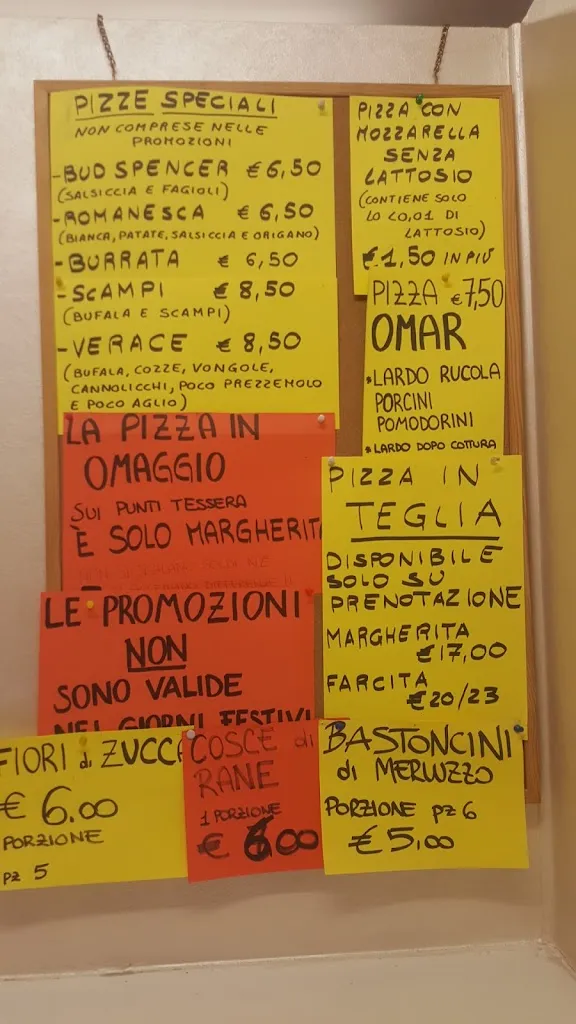 PIZZE SPECIALI
NON COMPRESE NELLE
PROMOZIONI
-BUD SPENCER € 6,50
(SALSICCIA E FAGIOLI)
-ROMANESCA € 6,50
(BIANCA, PATATE, SALSICCIA E ORIGANO)
-BURRATA € 6,50
-SCAMPI € 8,50
(BUFALA E SCAMPI)
-VERACE € 8,50
(BUFALA, COZZE, VONGOLE,
CANNOLICCHI, POCO PREZZEMOLO
E POCO AGLIO)
PIZZA CON
MOZZARELLA
SENZA
LATTOSIO
(CONTIENE SOLO
LO <0,01 DI
LATTOSIO)
€ 1,50 IN PIÙ
PIZZA € 7,50
OMAR
*LARDO RUCOLA
PORCINI
POMODORINI
*LARDO DOPO COTTURA
LA PIZZA IN
OMAGGIO
SUI PUNTI TESSERA
È SOLO MARGHERIT
PIZZA IN
TEGLIA
DISPONIBILE
SOLO SU
PRENOTAZIONE
MARGHERITA
€ 17,00
FARCITA
€ 20/23
LE PROMOZIONI
NON
SONO VALIDE
NEI GIORNI FESTIVI
FIORI di ZUCC
€ 6.00
PORZIONE
PZ 5
COSCE di
RANE
1 PORZIONE
€ 6.00
BASTONCINI
di MERLUZZO
PORZIONE PZ 6
€ 5,00